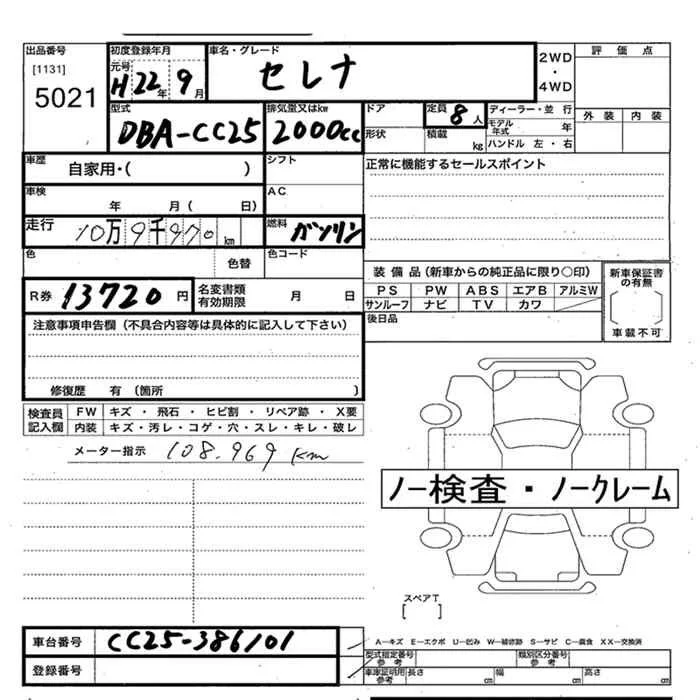 出品番号 初度登録年月 車名・グレード 2WD・4WD 評価点
[1131] 元号 H22年9月 セレナ
5021 外装 内装
型式 排気量又はkw ドア 定員 8人 ディーラー・並行
DBA-CC25 2000cc 形状 積載 kg モデル年式 年
ハンドル 左・右
車歴 自家用・( ) シフト 正常に機能するセールスポイント
車検 年 月( 日) AC
走行 10万9千970km 燃料 ガソリン
色 色替 色コード
装備品(新車からの純正品に限り○印) 新車保証書の有無
R券 13720円 名変書類有効期限 月 日 PS PW ABS エアB アルミW
サンルーフ ナビ TV カワ
注意事項申告欄(不具合内容等は具体的に記入して下さい) 後日品 車載不可
修復歴 有(箇所 )
検査員記入欄 FW キズ・飛石・ヒビ割・リペア跡・X要
内装 キズ・汚レ・コゲ・穴・スレ・キレ・破レ
メーター指示 108.969 km
ノー検査・ノークレーム
スペアT
[ ]
車台番号 CC25-386101 A-キズ E-エクボ U-凹み W-補修跡 S-サビ C-腐食 XX-交換済
登録番号 型式指定番号 参考 類別区分番号 参考
車庫証明用 参考 長さ cm 幅 cm 高さ cm